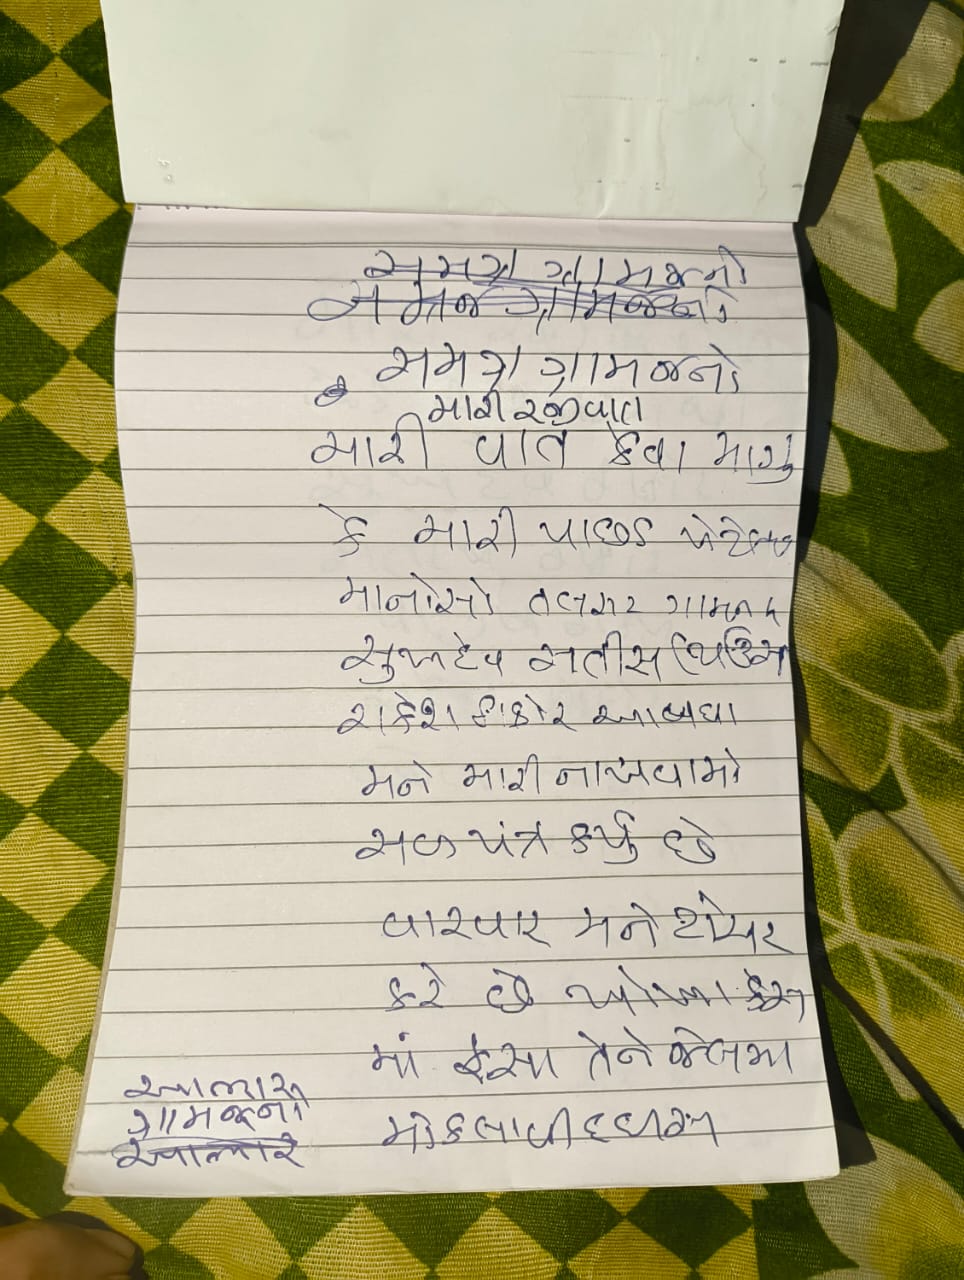 સમગ્ર ગ્રામજનો
સમગ્ર ગ્રામજનો
સમગ્ર ગ્રામજનો
મારી રજીવાત
મારી વાત કેવા માગુ
કે મારી પાછળ
માનોસો તલસટ ગામના
સુખદેવ સતીસ
રાકેશ ઠાકોર આ બધા
મને મારી નાખવામો
સળયંત્ર કર્યુ છે
વારવાર મને ટોચર
કરે છે ખોખા કેસ
માં ફસા તેને જેલમા
મોકલાવી દઇસ
આભાર
ગ્રામજનો
આભાર